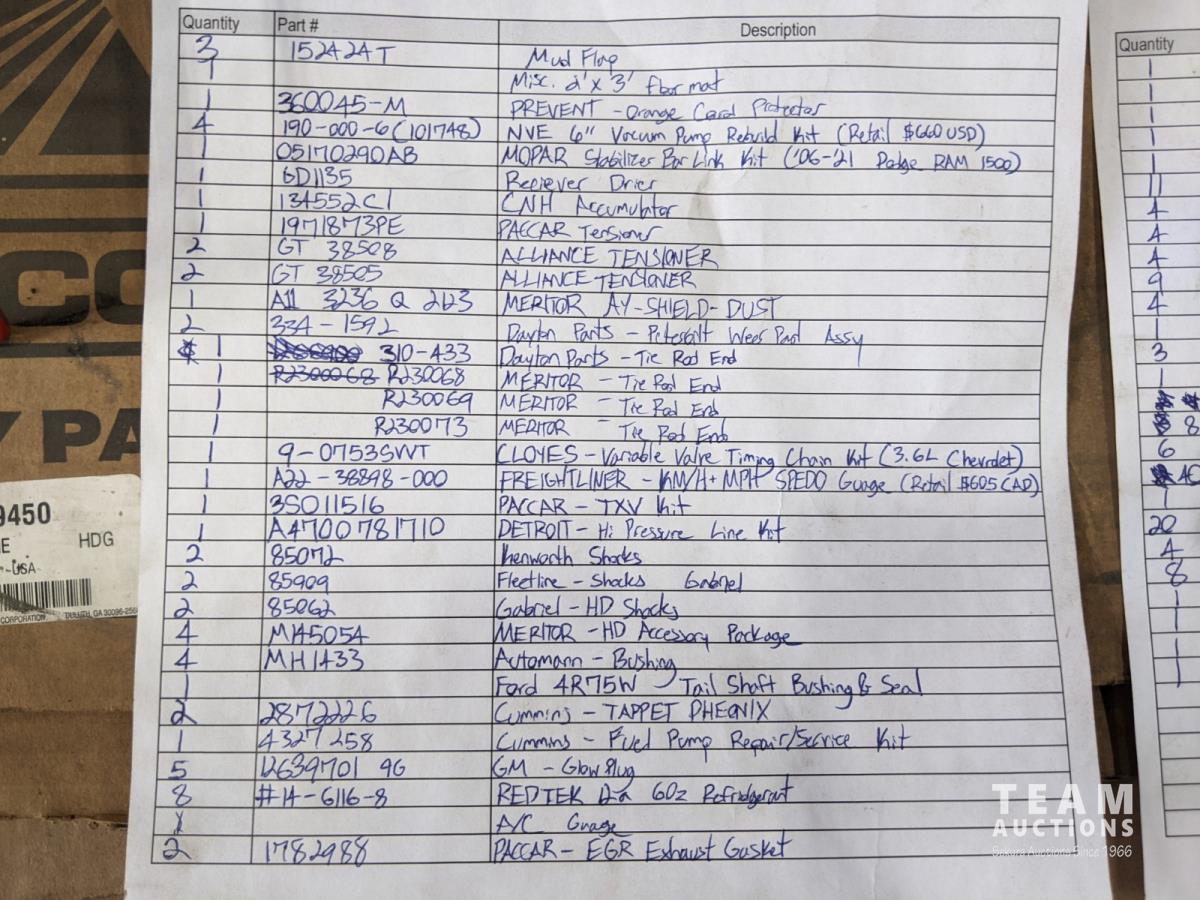 Quantity Part # Description
3 152424T Mud Flap
1 Misc. 2' x 3' floor mat
1 360045-M PREVENT - Orange Card Protector
4 190-000-6 (101748) NVE 6" Vacum Pump Rebuild Kit (Retail $660 USD)
1 05170290AB MOPAR Stabilizer Bar Link Kit ('06-'21 Dodge RAM 1500)
1 GD1135 Reciever Drier
1 134552C1 CNH Accumulator
1 1971873PE PACCAR Tensioner
2 GT 38508 ALLIANCE TENSIONER
2 GT 38505 ALLIANCE TENSIONER
1 A11 3236 Q 2123 MERITOR AY-SHIELD-DUST
2 334-1592 Dayton Parts - Peterbilt Wear Pad Assy
1 310-433 Dayton Parts - Tie Rod End
1 R2300068 R230068 MERITOR - Tie Rod End
1 R230069 MERITOR - Tie Rod End
1 R230073 MERITOR - Tie Rod End
1 9-0753SVVT CLOYES - Variable Valve Timing Chain Kit (3.6L Chevrolet)
1 A22-38898-000 FREIGHTLINER - KM/H + MPH SPEDO Guage (Retail $605 CAD)
1 3S011516 PACCAR - TXV Kit
1 A4700781710 DETROIT - Hi Pressure Line Kit
2 85072 Kenworth Shocks
2 85909 Fleetline - Shocks Gabriel
2 85062 Gabriel - HD Shocks
4 M145054 MERITOR - HD Accessory Package
4 MH1433 Automann - Bushing
1 Ford 4R75W - Tail Shaft Bushing & Seal
2 2872226 Cummins - TAPPET PHEONIX
1 4327258 Cummins - Fuel Pump Repair/Service Kit
5 12639701 9G GM - Glow Plug
8 #14-6116-8 REDTEK 12a 6oz Refridgerant
1 A/C Guage
2 1782988 PACCAR - EGR Exhaust Gasket
Quantity
1
1
1
1
1
11
4
4
4
9
4
1
3
1
8
6
AC
1
20
4
8
1
1
1
1
CO
Y PA
9450
E HDG
-USA
CORPORATION. DULUTH, GA 30096
TEAM
AUCTIONS
Sakura Auctions Since 1966